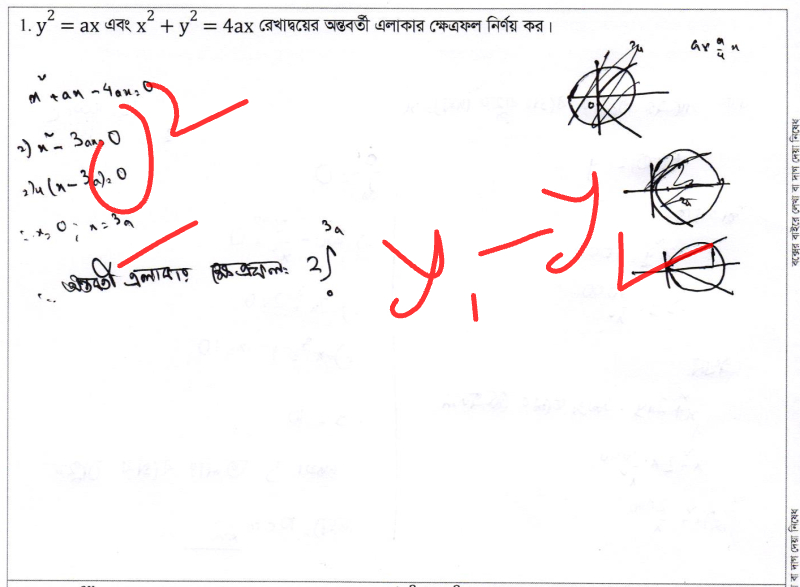 1. y² = ax এবং x² + y² = 4ax রেখাদ্বয়ের অন্তবর্তী এলাকার ক্ষেত্রফল নির্ণয় কর।
x² + ax - 4ax = 0
⇒) x² - 3ax = 0
⇒) x (x - 3a) = 0
∴ x = 0 ; x = 3a
∴ অন্তবর্তী এলাকার ক্ষেত্রফল = 2∫₀³ᵃ
y₁ - y
বক্সের বাইরে লেখা বা দাগ দেয়া নিষেধ
বা দাগ দেয়া নিষেধ